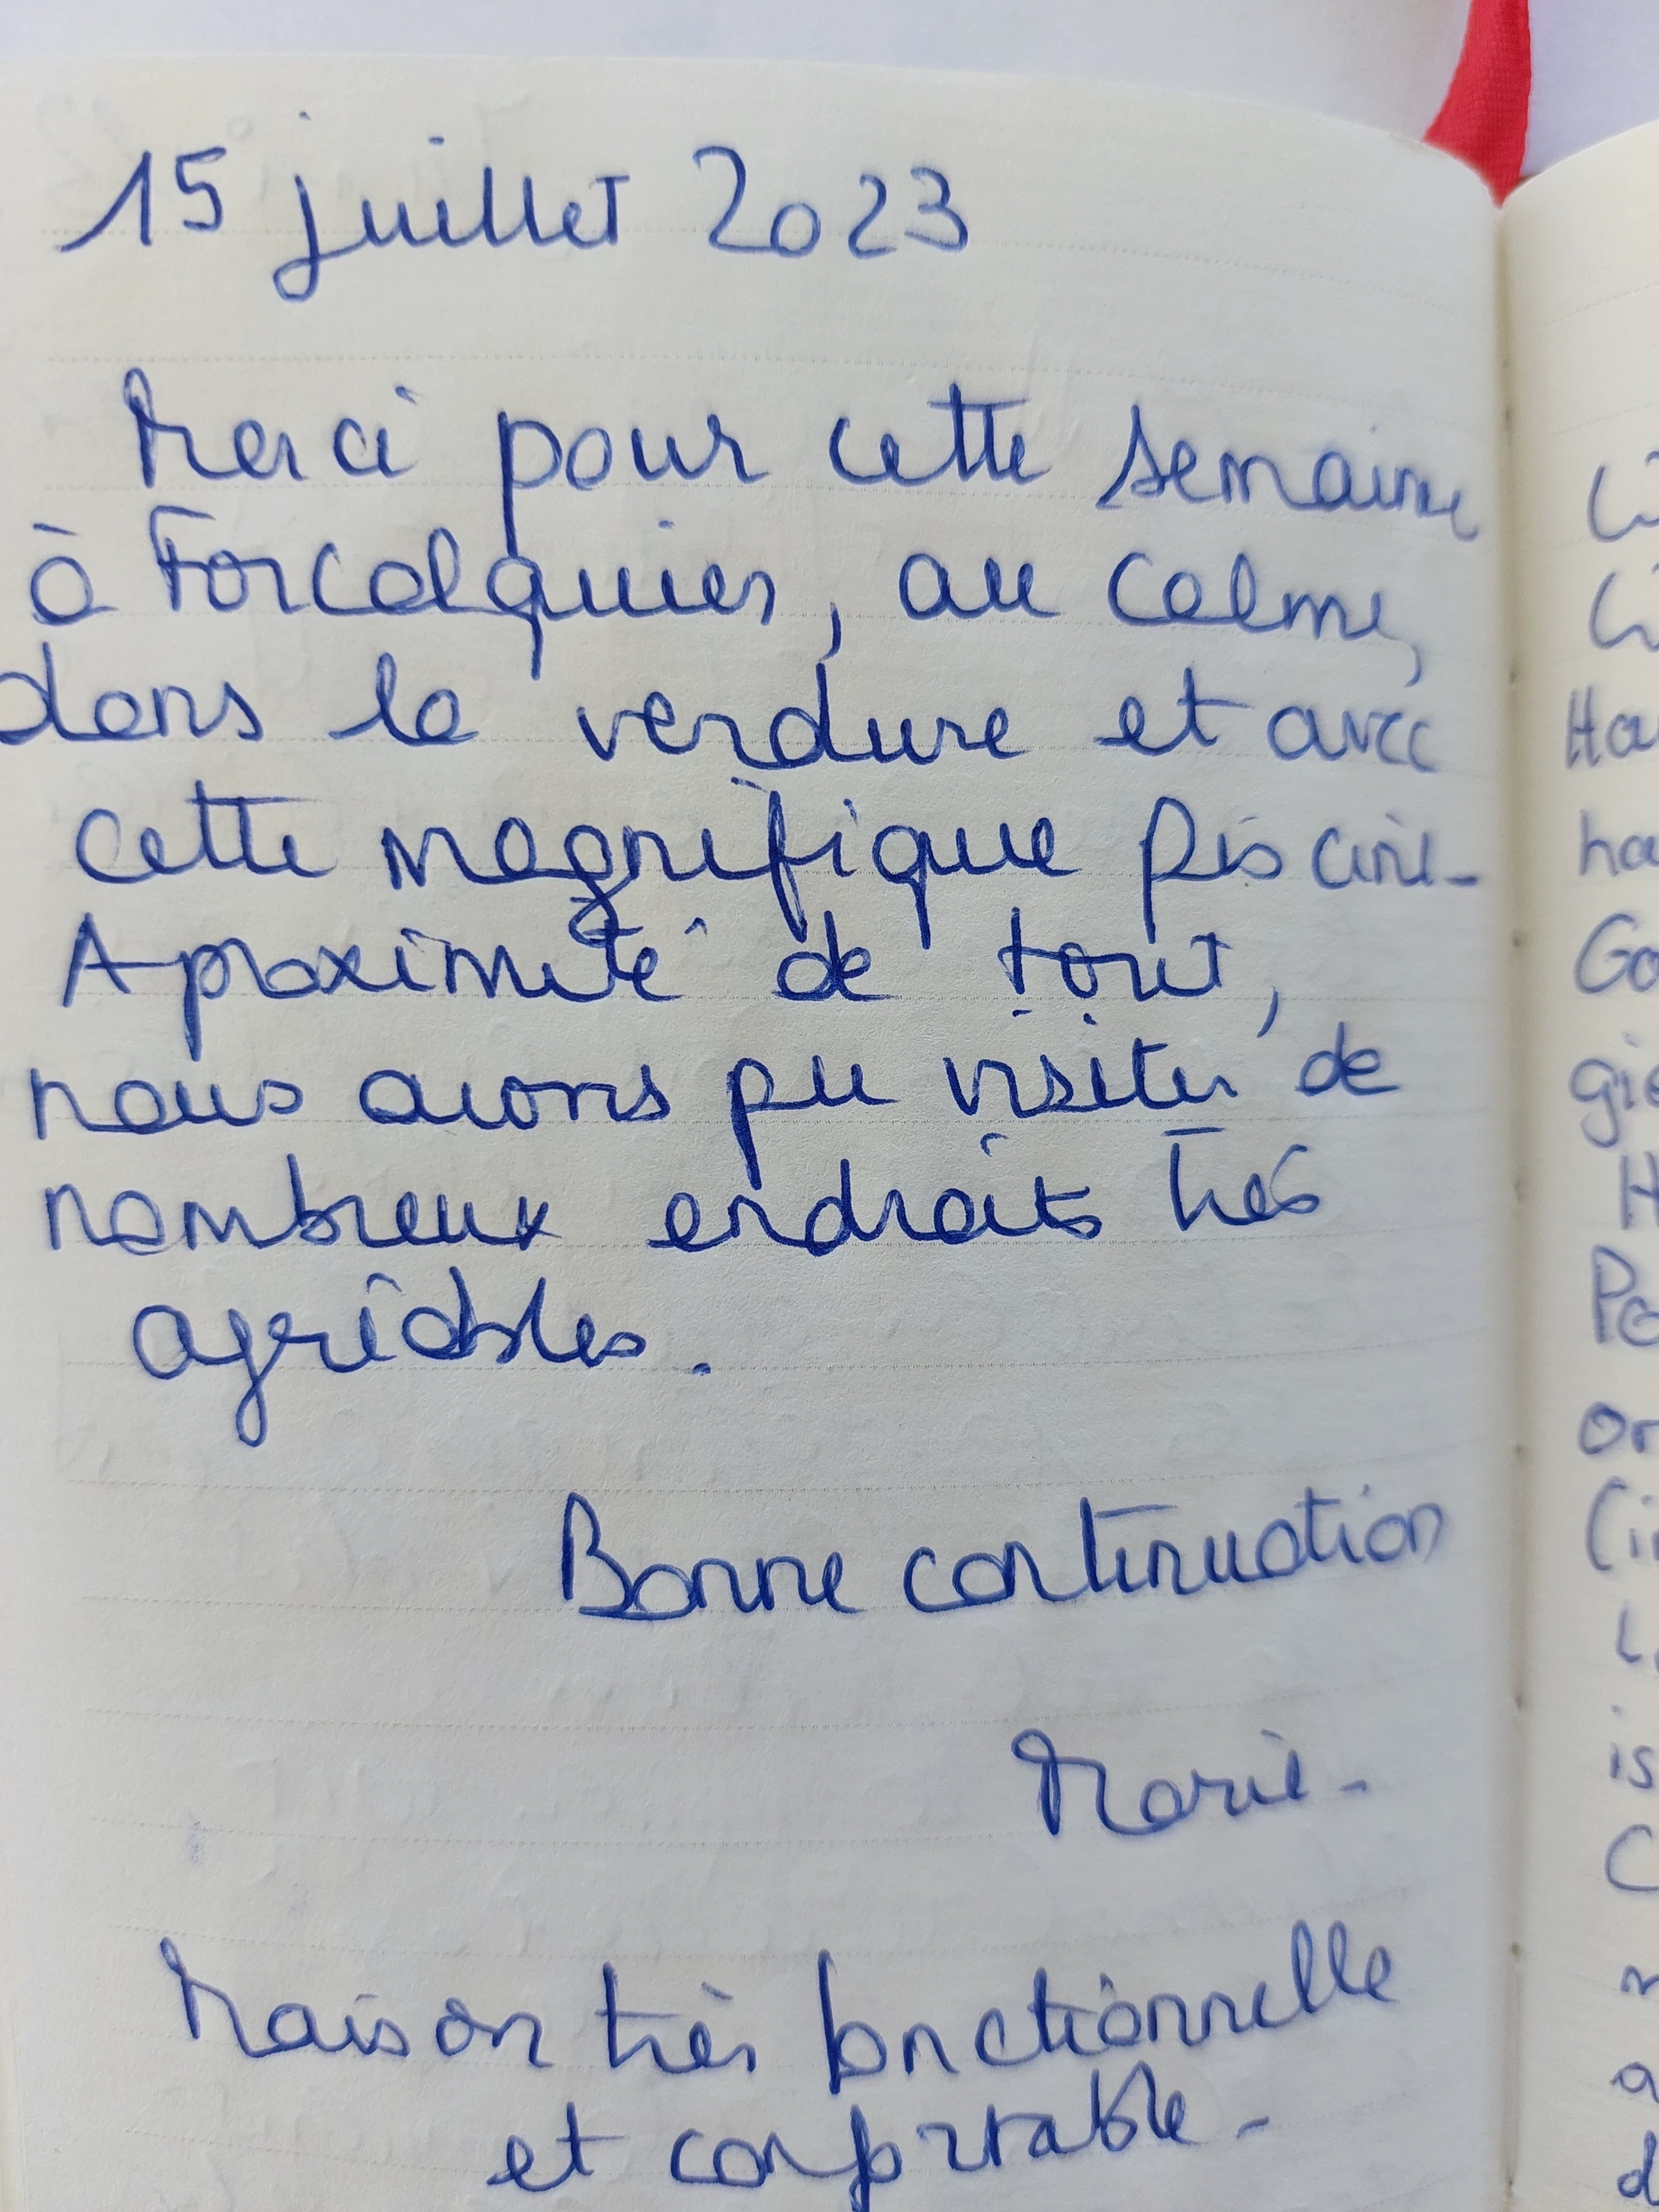 15 juillet 2023
Merci pour cette semaine
à Forcalquier, au calme,
dans la verdure et avec
cette magnifique piscine.
A proximité de tout,
nous avons pu visiter de
nombreux endroits très
agréables.
Bonne continuation
Marie.
Maison très fonctionnelle
et confortable.
Ha
ha
Go
gie
H
Po
or
is